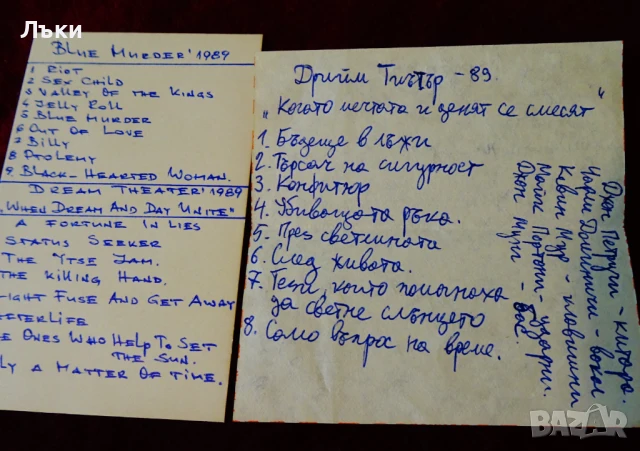 Лъки
BLUE MURDER' 1989
1 RIOT
2 SEX CHILD
3 VALLEY OF THE KINGS
4 JELLY ROLL
5 BLUE MURDER
6 OUT OF LOVE
7 BILLY
8 PTOLEMY
9 BLACK-HEARTED WOMAN.
DREAM THEATER' 1989
„WHEN DREAM AND DAY UNITE"
A FORTUNE IN LIES
STATUS SEEKER
THE YTSE JAM.
THE KILLING HAND.
IGHT FUSE AND GET AWAY
FTERLIFE
E ONES WHO HELP TO SET
THE SUN.
LY A MATTER OF TIME.
Дрийм Тиътър - 89.
„Когато мечтата и денят се смесят"
1. Бъдеще в лъжи
2. Търсач на сигурност
3. Конфитюр
4. Убиващата ръка.
5. През светлината
6. След живота.
7. Тези, които помогнаха
да светне слънцето
8. Само въпрос на време.
Джон Петручи - китара.
Чарли Доминичи - вокал
Кевин Мур - клавишни
Майк Портной - ударни.
Джон Мянг - бас.
BAZAR